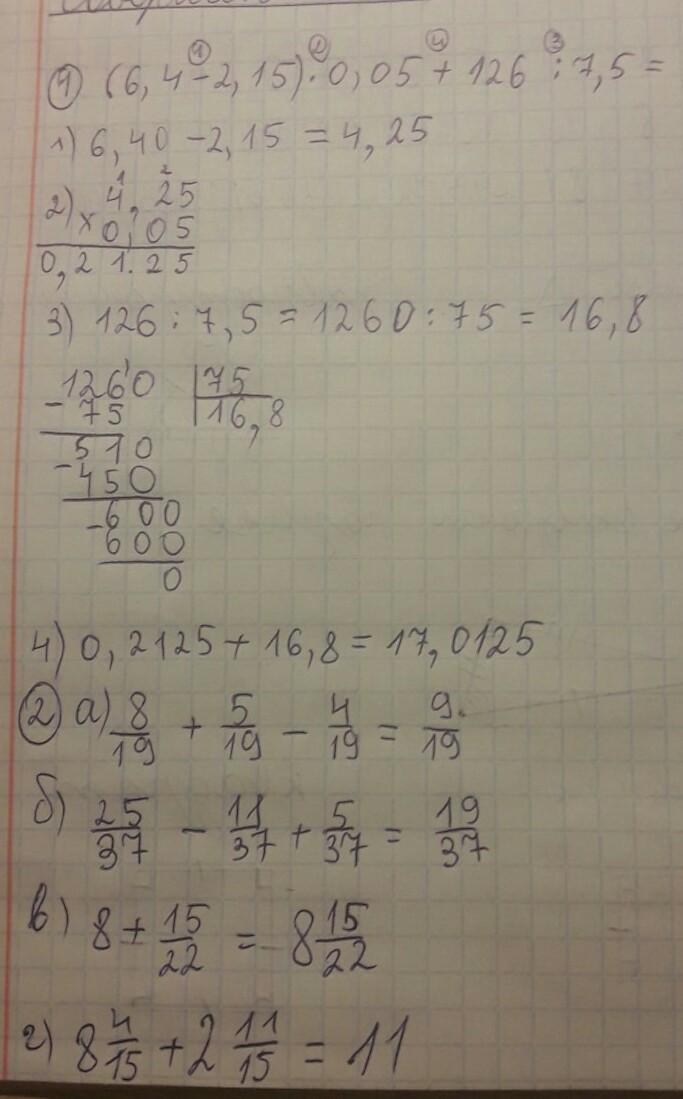 ① (6,4-2,15)·0,05+126:7,5=
1) 6,40-2,15=4,25
2) 4,25
×0,05
0,21.25
3) 126:7,5=1260:75=16,8
1260 |75
-75 |16,8
510
-450
-600
600
0
4) 0,2125+16,8=17,0125
② а) 8/19 + 5/19 - 4/19 = 9/19
б) 25/37 - 11/37 + 5/37 = 19/37
в) 8 + 15/22 = 8 15/22
г) 8 4/15 + 2 11/15 = 11